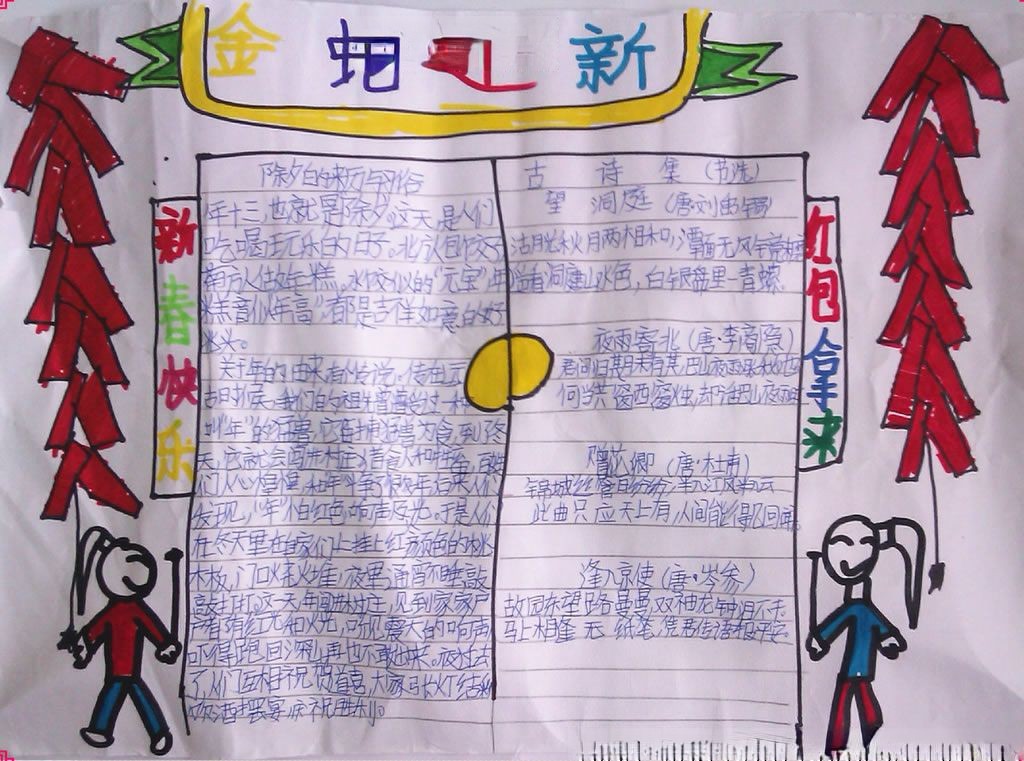 金蛇迎新
新春快乐
除夕的来历与习俗
年十三,也就是除夕。这天是人们
吃喝玩乐的日子。北方人包饺子
南方人做年糕。水饺似的“元宝”,年
糕音似“年高”,都是吉祥如意的好
兆头。
关于年的由来有个传说。传在
古时候,我们的祖先曾遭过一种
叫“年”的猛兽,它捕猎兽为食,到冬
天,它就会闯进村庄猎食人和牲畜,百姓
们人心惶惶,和“年”争了很多年后来人们
发现,“年”怕红色、响声及光。于是人们
在冬天里在自家们上挂上红颜色的桃
木板,门口烧火堆,夜里通宵不睡敲
敲打打。这天,年闯进村庄,见到家家户
户有红光和火光,听见震天的响声
吓得跑回深山再也不敢出来。夜过去
了,人们互相祝贺道喜,大家张灯结彩
饮酒摆宴庆祝胜利。
古诗集(节选)
望洞庭(唐·刘禹锡)
湖光秋月两相和,潭面无风镜
遥看洞庭山水色,白银盘里一青螺
夜雨寄北(唐·李商隐)
君问归期未有期,巴山夜雨涨秋池
何当共窗西窗烛,却话巴山夜雨
赠花卿(唐·杜甫)
锦城丝管日纷纷,半入江风半入云
此曲只应天上有,人间能得几回闻
逢入京使(唐·岑参)
故园东望路曼曼,双袖龙钟泪不干
马上相逢无纸笔,凭君传语报平安。
红包合手来